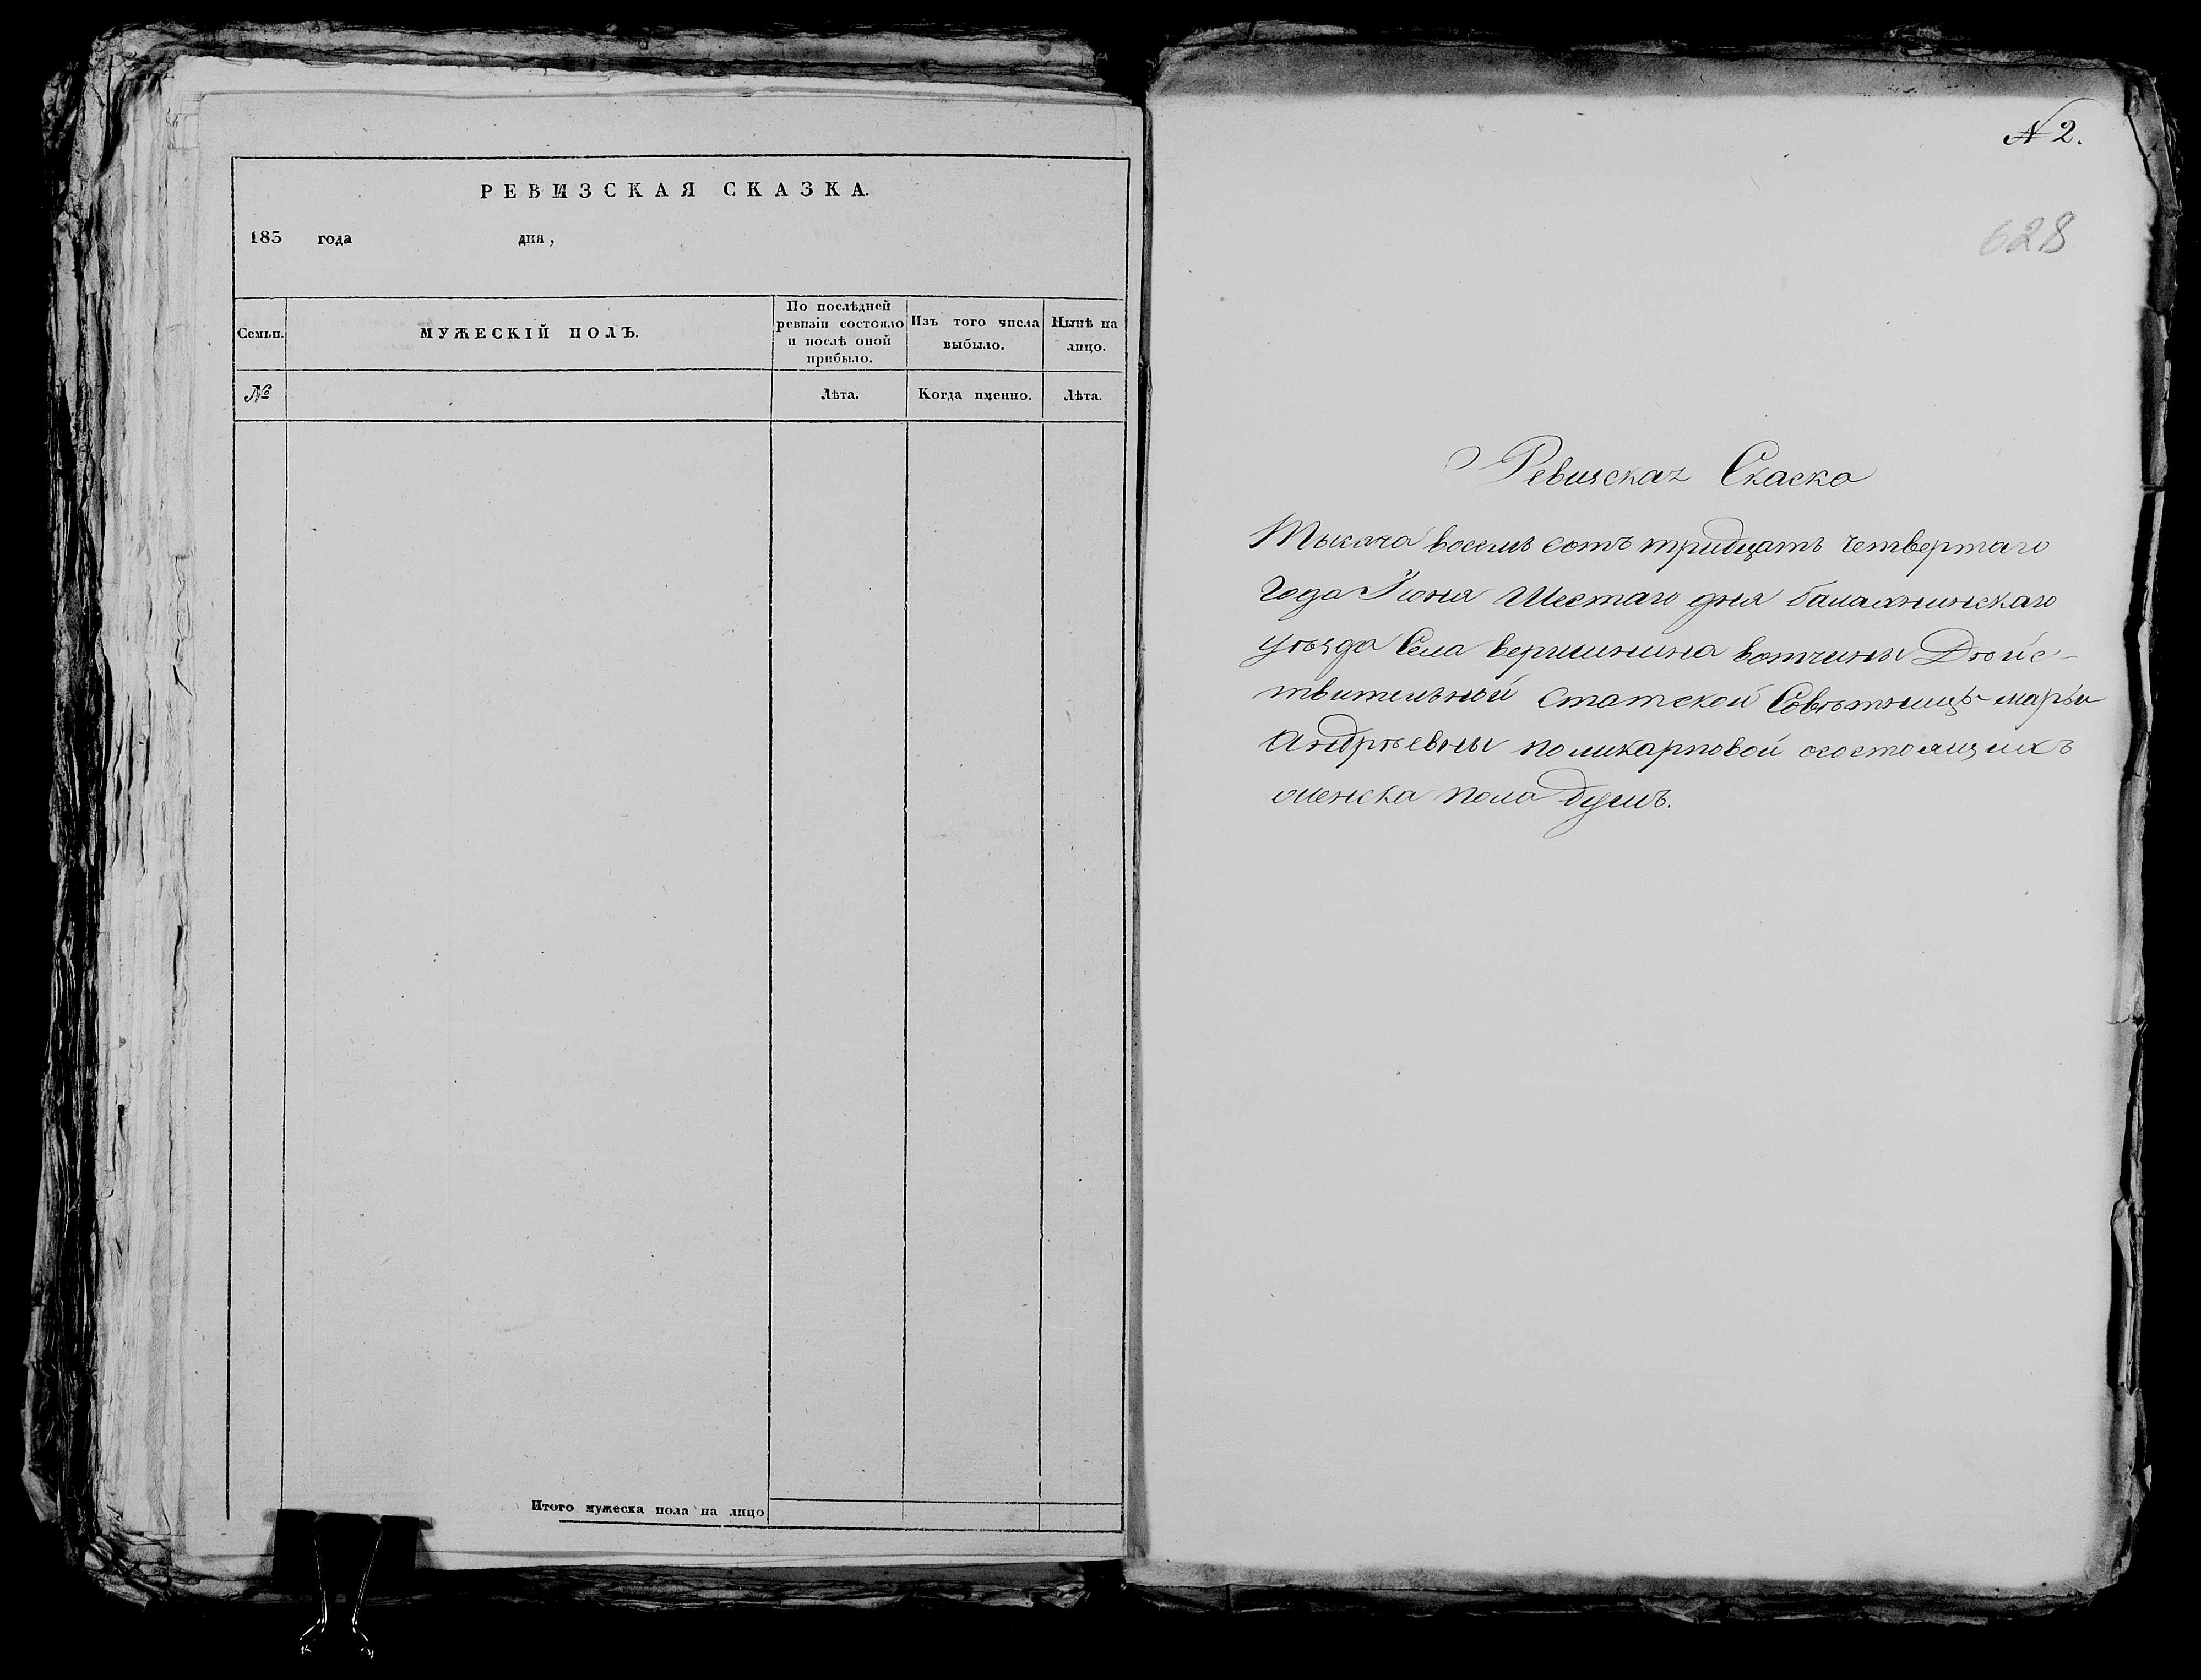 РЕВИЗСКАЯ СКАЗКА.
183 года дня,
Семьи.
МУЖЕСКІЙ ПОЛЪ.
По послѣдней
ревизіи состояло
и послѣ оной
прибыло.
Изъ того числа
выбыло.
Нынѣ на
лицо.
№
Лѣта.
Когда именно.
Лѣта.
Итого мужеска пола на лицо
№ 2.
628
Ревизская Скаска
Тысяча восемь сотъ тридцать четвертаго
Года Іюня Шестаго дня балахнинскаго
уѣзда Села вершинина вотчины Дѣйс-
твительной Статской Совѣтницы марьи
Андрѣевны поликарповой осостоящихъ
женска пола душъ.